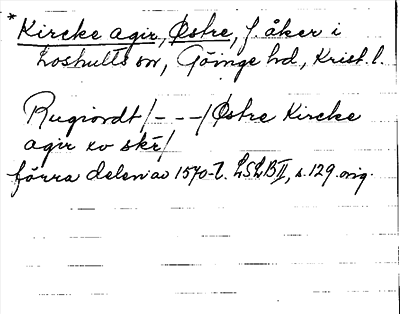 * Kircke agir, Østre, f. åker i
Loshults sn, Göinge hd, Krist. l.
Rugiordt /- - -/ Østre Kircke
agir xv skr/
förra delen av 1570-t. LSLB II, s. 129 orig.